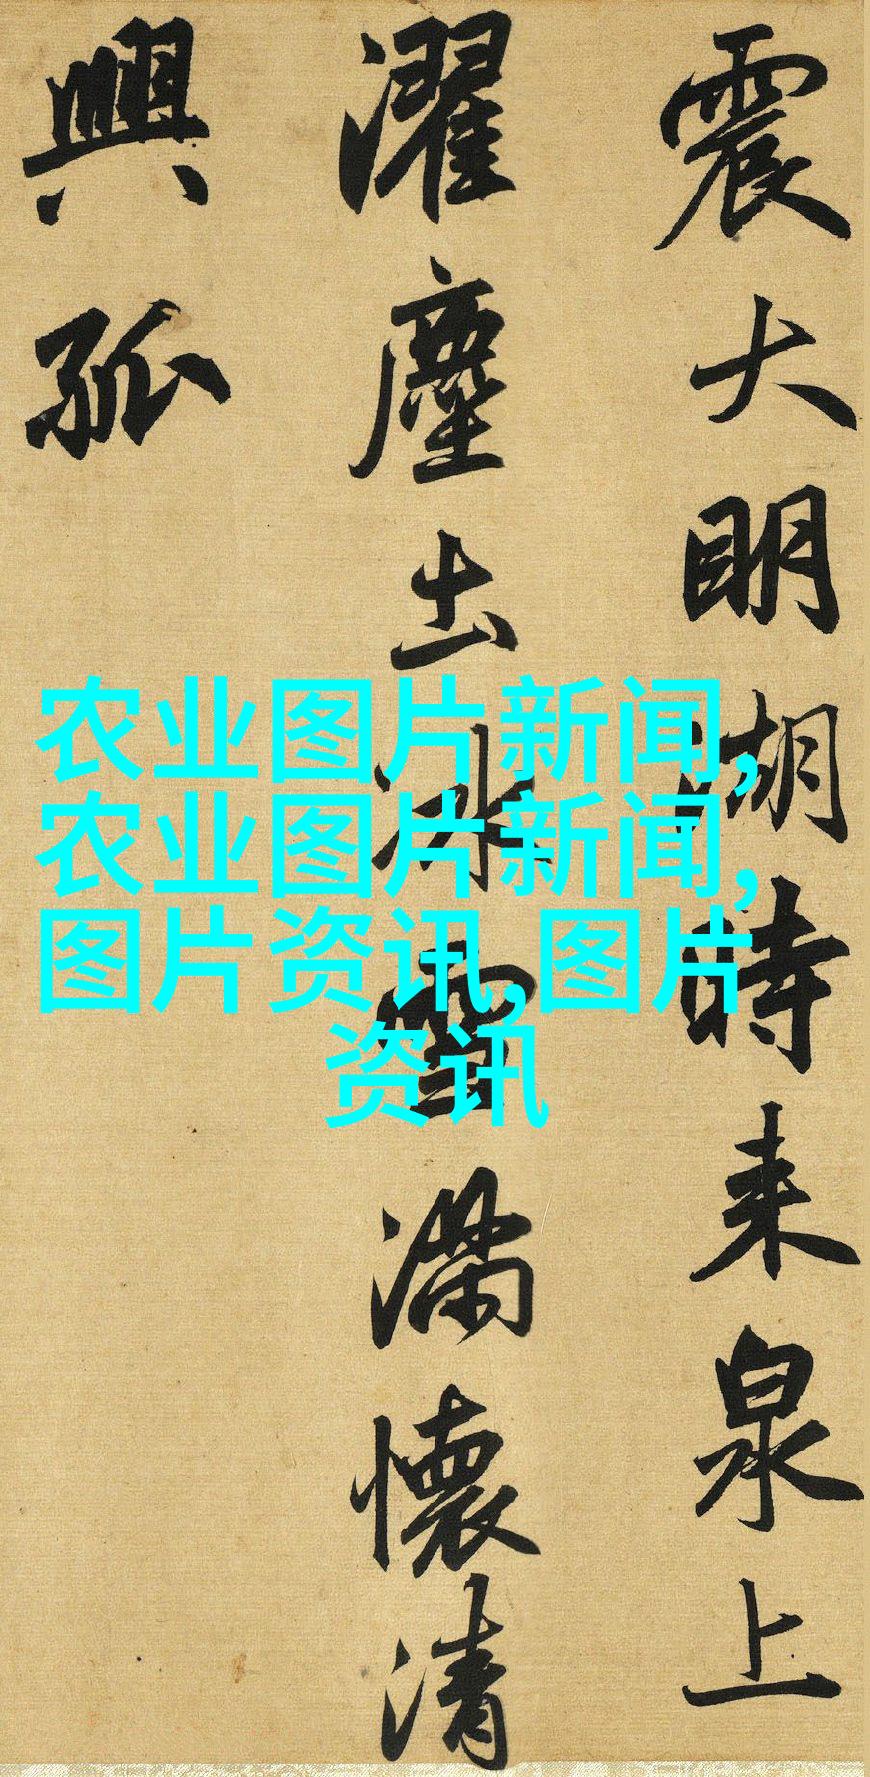 震大明湖時来泉上
濯塵土冰雪滿懷清
興孤
农业图片新闻,
农业图片新闻,
图片资讯,图片
资讯